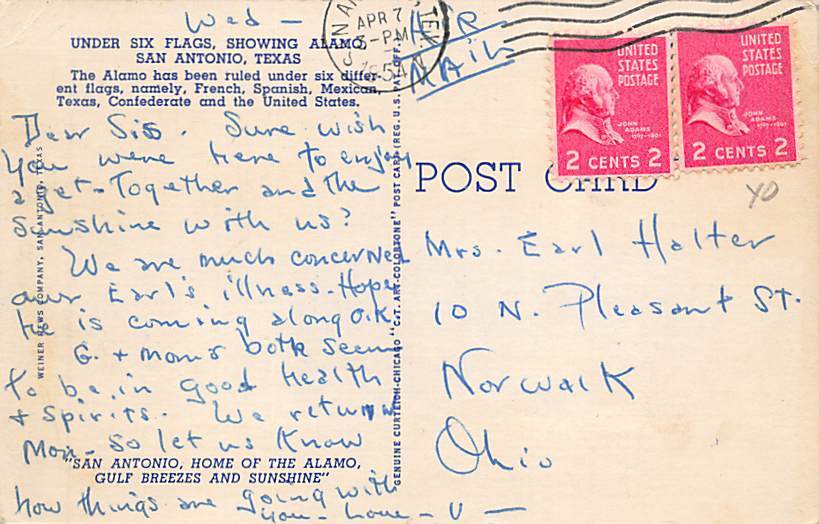 Wed -
UNDER SIX FLAGS, SHOWING ALAMO,
SAN ANTONIO, TEXAS
The Alamo has been ruled under six differ-
ent flags, namely, French, Spanish, Mexican,
Texas, Confederate and the United States.
Dear Sis. Sure wish
you were here to enjoy
a get-together and the
sunshine with us?
We are much concerned
over Earl's illness. Hope
he is coming along O.K.
G. + mom's both seem
to be in good health
+ spirits. We return
Mon - So let us know
"SAN ANTONIO, HOME OF THE ALAMO,
GULF BREEZES AND SUNSHINE"
how things are going with
you - love - V -
WEINER NEWS COMPANY, SAN ANTONIO, TEXAS
GENUINE CURTEICH-CHICAGO "C.T. ART-COLORTONE" POST CARD (REG. U.S. PAT. OFF.)
SAN AN
TEX
APR 7
PM
1954
AIR
MAIL
UNITED
STATES
POSTAGE
JOHN
ADAMS
1797-1801
2 CENTS 2
UNITED
STATES
POSTAGE
JOHN
ADAMS
1797-1801
2 CENTS 2
POST CARD
YO
Mrs. Earl Halter
10 N. Pleasant St.
Norwalk
Ohio